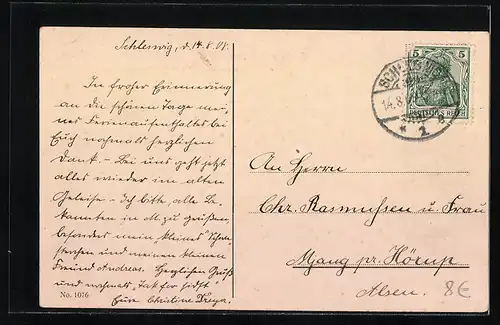 Schleswig, d. 14.8.08.
In froher Erinnerung
an die schönen Tage mei-
nes Ferienaufenthaltes bei
Euch nochmals herzlichen
Dank. – Bei uns geht jetzt
alles wieder im alten
Geleise. – Ich bitte, alle Be-
kannten in M. zu grüßen,
besonders mein "kleines"
sterchen und meinen kleinen
Freund Andreas. Herzlichen Gruß
und nochmals "Tak for sidst"
Eure Christine
No. 1076
5 5
DEUTSCHES REICH
SCHLESWIG
14.8.
* 2
An Herrn
Chr. Rasmussen u. Frau
Mjang pr. Hörup
Alsen.
8€